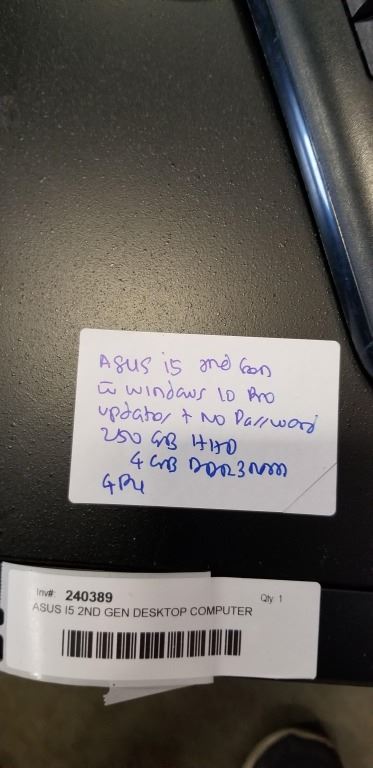 ASUS i5 2nd Gen
w̄ Windows 10 Pro
updates + No Password
250 GB HHD
4 GB DDR3
GPU
Inv#: 240389
Qty. 1
ASUS I5 2ND GEN DESKTOP COMPUTER